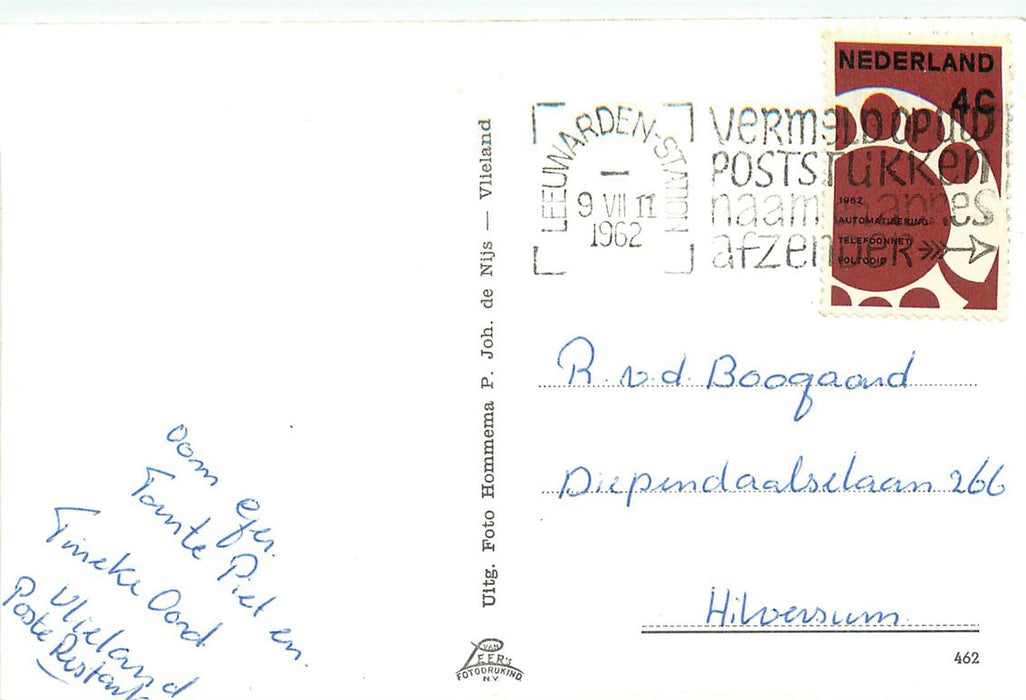 NEDERLAND
4C
1962
AUTOMATISERING
TELEFOONNET
VOLTOOID
LEEUWARDEN-STATION
9 VII 17
1962
VERMELD OP UW
POSTSTUKKEN
naam en adres
afzender
Uitg. Foto Hommema P. Joh. de Nijs — Vlieland
R. v.d. Boogaard
Diependaalselaan 266
Hilversum
Oom Ger.
Tante Piet en
Tineke Oord
Vlieland
Poste Restante
VAN
LEER'S
FOTODRUKIND.
N.V.
462